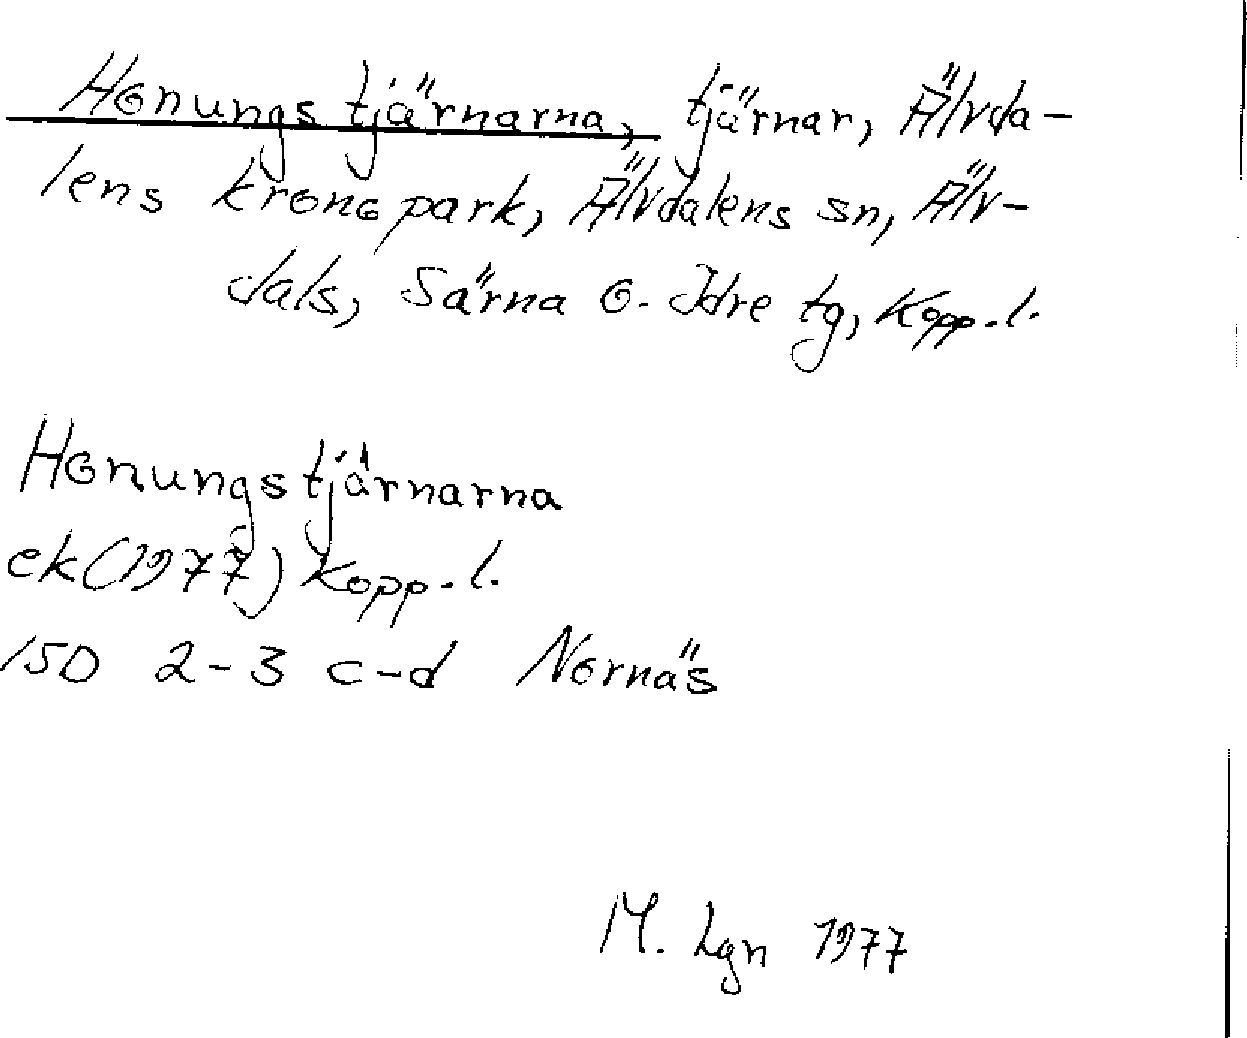 Honungstjärnarna, tjärnar, Älvda-
lens kronopark, Älvdalens sn, Älv-
dals, Särna o. Idre tg, Kopp. l.
Honungstjärnarna
ek (1977) Kopp. l.
15D 2-3 c-d Nornäs
M. Lgn 1977